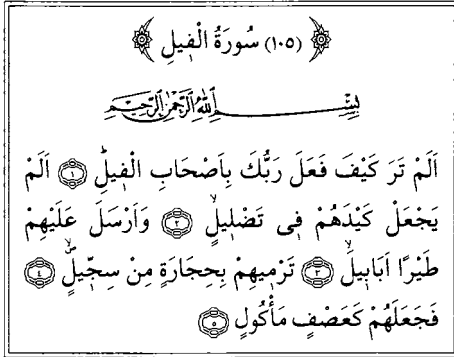 ﴿١٠٥﴾ سُورَةُ الْفٖيلِ
بِسْــــمِ اللّٰهِ الرَّحْمٰنِ الرَّحٖيمِ
اَلَمْ تَرَ كَيْفَ فَعَلَ رَبُّكَ بِاَصْحَابِ الْفٖيلِؕ ﴿١﴾ اَلَمْ
يَجْعَلْ كَيْدَهُمْ فٖى تَضْلٖيلٍۙ ﴿٢﴾ وَاَرْسَلَ عَلَيْهِمْ
طَيْرًا اَبَابٖيلَۙ ﴿٣﴾ تَرْمٖيهِمْ بِحِجَارَةٍ مِنْ سِجّٖيلٍۙ ﴿٤﴾
فَجَعَلَهُمْ كَعَصْفٍ مَأْكُولٍ ﴿٥﴾